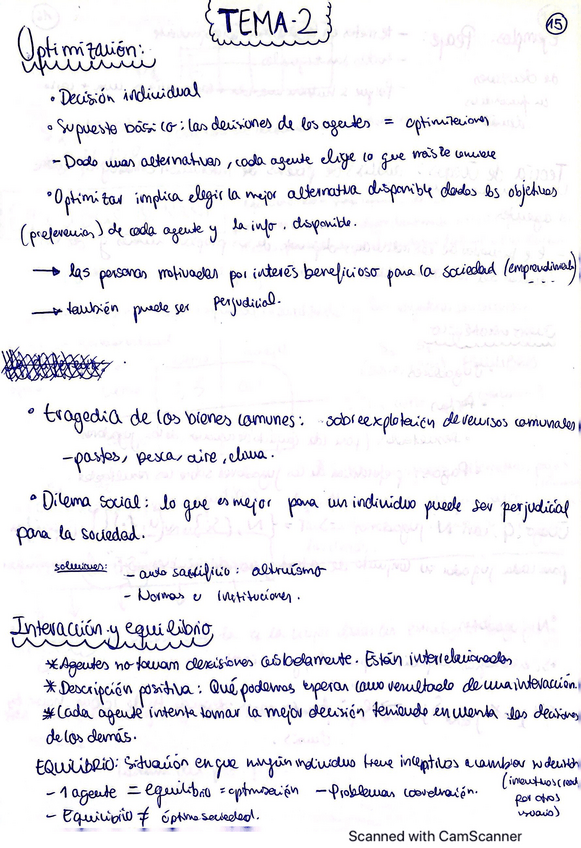 TEMA-2
15
Optimización:
• Decisión individual
• Supuesto básico: las decisiones de los agentes = optimizaciones
- Dado unas alternativas, cada agente elige lo que más le conviene
• Optimizar implica elegir la mejor alternativa disponible dados los objetivos
(preferencias) de cada agente y la info. disponible.
→ las personas motivadas por interés beneficioso para la sociedad (emprendimiento)
→ también puede ser perjudicial.
• tragedia de los bienes comunes: sobreexplotación de recursos comunales
- pastos, pesca, aire,
• Dilema social: lo que es mejor para un individuo puede ser perjudicial
para la sociedad.
soluciones: - auto sacrificio: altruismo
- Normas e Instituciones.
Interacción y equilibrio
* Agentes no toman decisiones aisladamente. Están interrelacionados
* Descripción positiva: Qué podemos esperar como resultado de una interacción.
* Cada agente intenta tomar la mejor decisión teniendo en cuenta las decisiones
de los demás.
EQUILIBRIO: Situación en que ningún individuo tiene incentivos a cambiar su decisión
- 1 agente = equilibrio = optimización - Problemas coordinación. (incentivos
por otros
usuario)
- Equilibrio ≠ óptimo sociedad.
Scanned with CamScanner